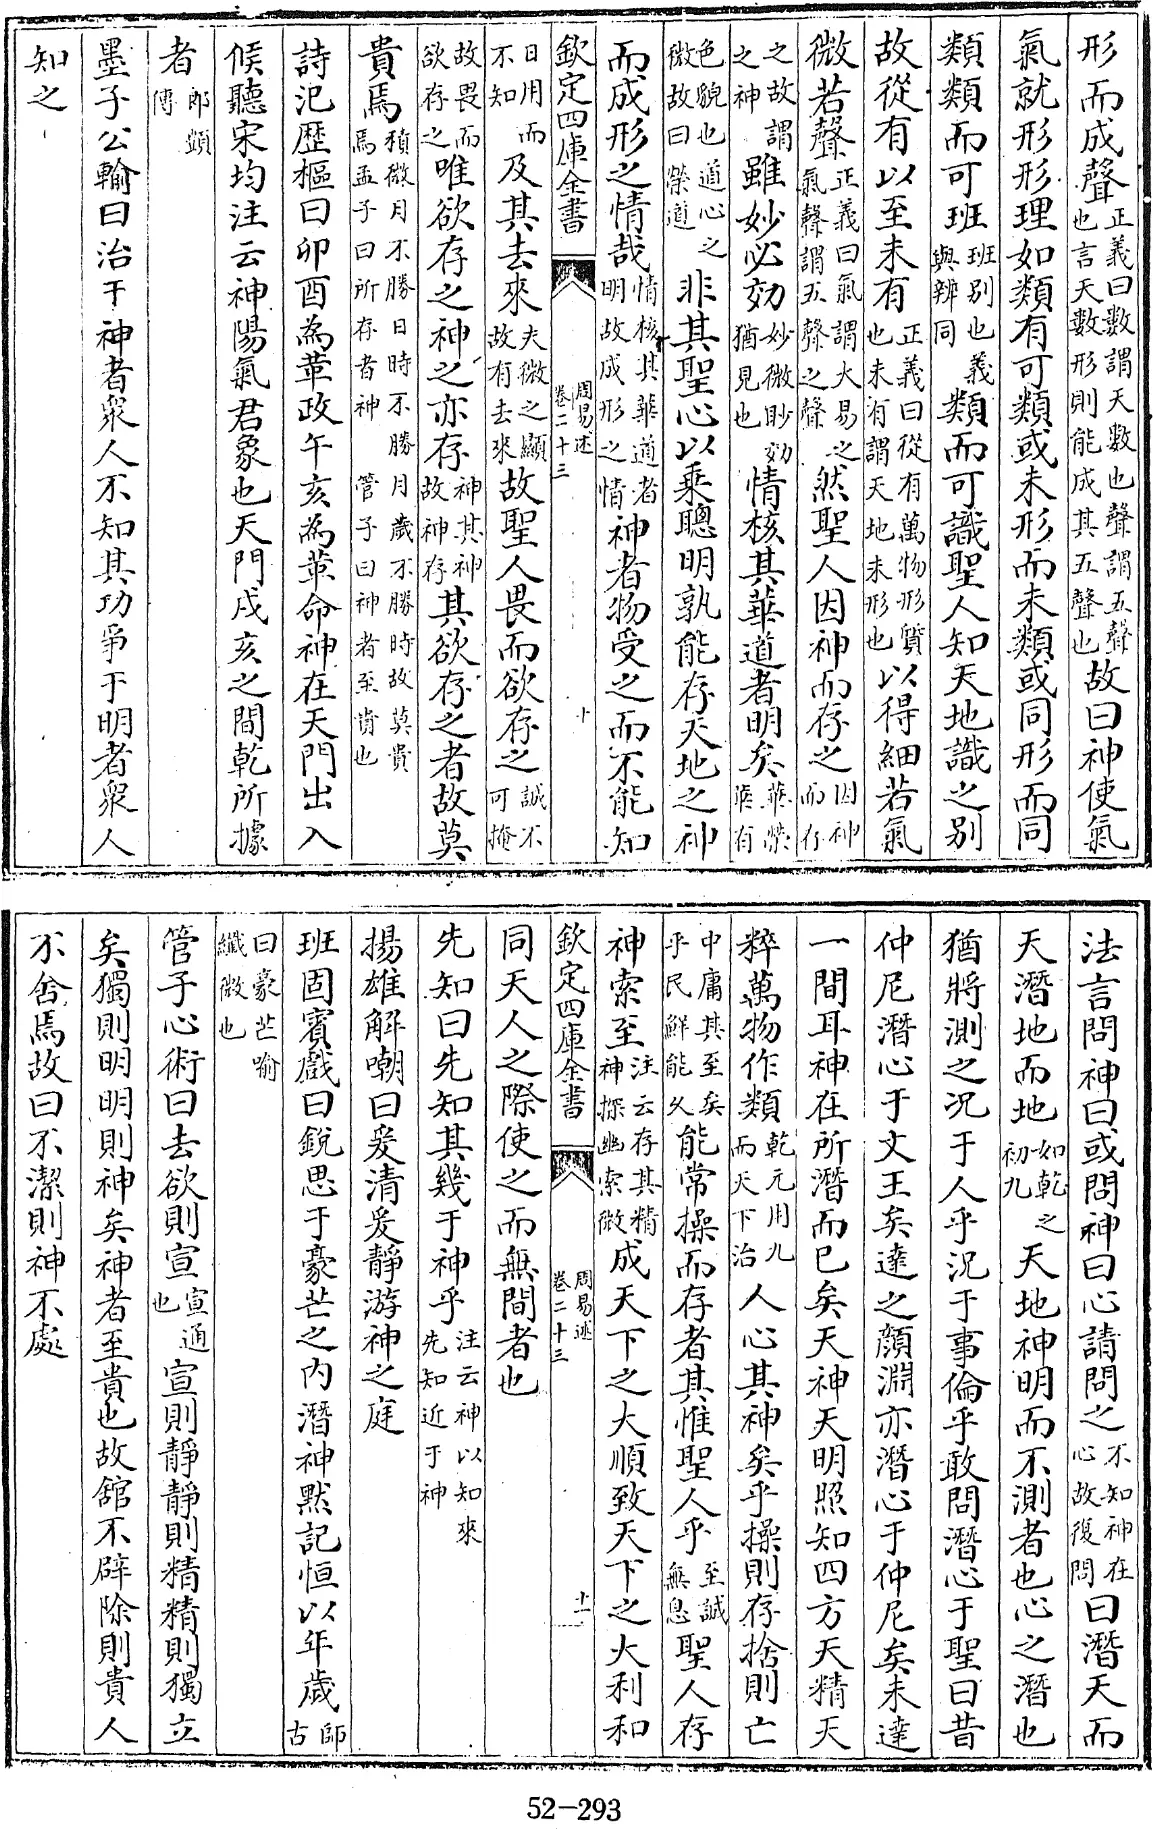 形而成聲正義曰數謂天數也聲謂五聲也言天數形則能成其五聲也故曰神使氣
氣就形形理如類有可類或未形而未類或同形而同
類類而可班班別也義與辨同類而可識聖人知天地識之別
故從有以至未有正義曰從有萬物形質也未有謂天地未形也以得細若氣
微若聲正義曰氣謂大易之氣聲謂五聲之聲然聖人因神而存之因神而存
之故謂之神雖妙必効妙微眇効猶見也情核其華道者明矣華榮華有
色貌也道心之微故曰榮道非其聖心以乘聰明孰能存天地之神
而成形之情哉情核其華道者明故成形之情神者物受之而不能知
欽定四庫全書
周易述
卷二十三
十
日用而不知及其去來夫微之顯故有去來故聖人畏而欲存之誠不可掩
故畏而欲存之唯欲存之神之亦存神其神故神存其欲存之者故莫
貴焉積微月不勝日時不勝月歲不勝時故莫貴焉孟子曰所存者神管子曰神者至貴也
詩汜歷樞曰卯酉為革政午亥為革命神在天門出入
候聽宋均注云神陽氣君象也天門戌亥之間乾所據
者郎顗傳
墨子公輸曰治于神者衆人不知其功爭于明者衆人
知之
法言問神曰或問神曰心請問之不知神在心故復問曰潛天而
天潛地而地如乾之初九天地神明而不測者也心之潛也
猶將測之況于人乎況于事倫乎敢問潛心于聖曰昔
仲尼潛心于文王矣達之顏淵亦潛心于仲尼矣未達
一間耳神在所潛而已矣天神天明照知四方天精天
粹萬物作類乾元用九而天下治人心其神矣乎操則存捨則亡
中庸其至矣乎民鮮能久能常操而存者其惟聖人乎至誠無息聖人存
神索至注云存其精神探幽索微成天下之大順致天下之大利和
欽定四庫全書
周易述
卷二十三
十一
同天人之際使之而無間者也
先知曰先知其幾于神乎注云神以知來先知近于神
揚雄解嘲曰爰清爰靜游神之庭
班固賓戲曰銳思于豪芒之內潛神默記恒以年歲師古
曰豪芒喻纖微也
管子心術曰去欲則宣宣通也宣則靜靜則精精則獨立
矣獨則明明則神矣神者至貴也故舘不辟除則貴人
不舍焉故曰不潔則神不處
52-293